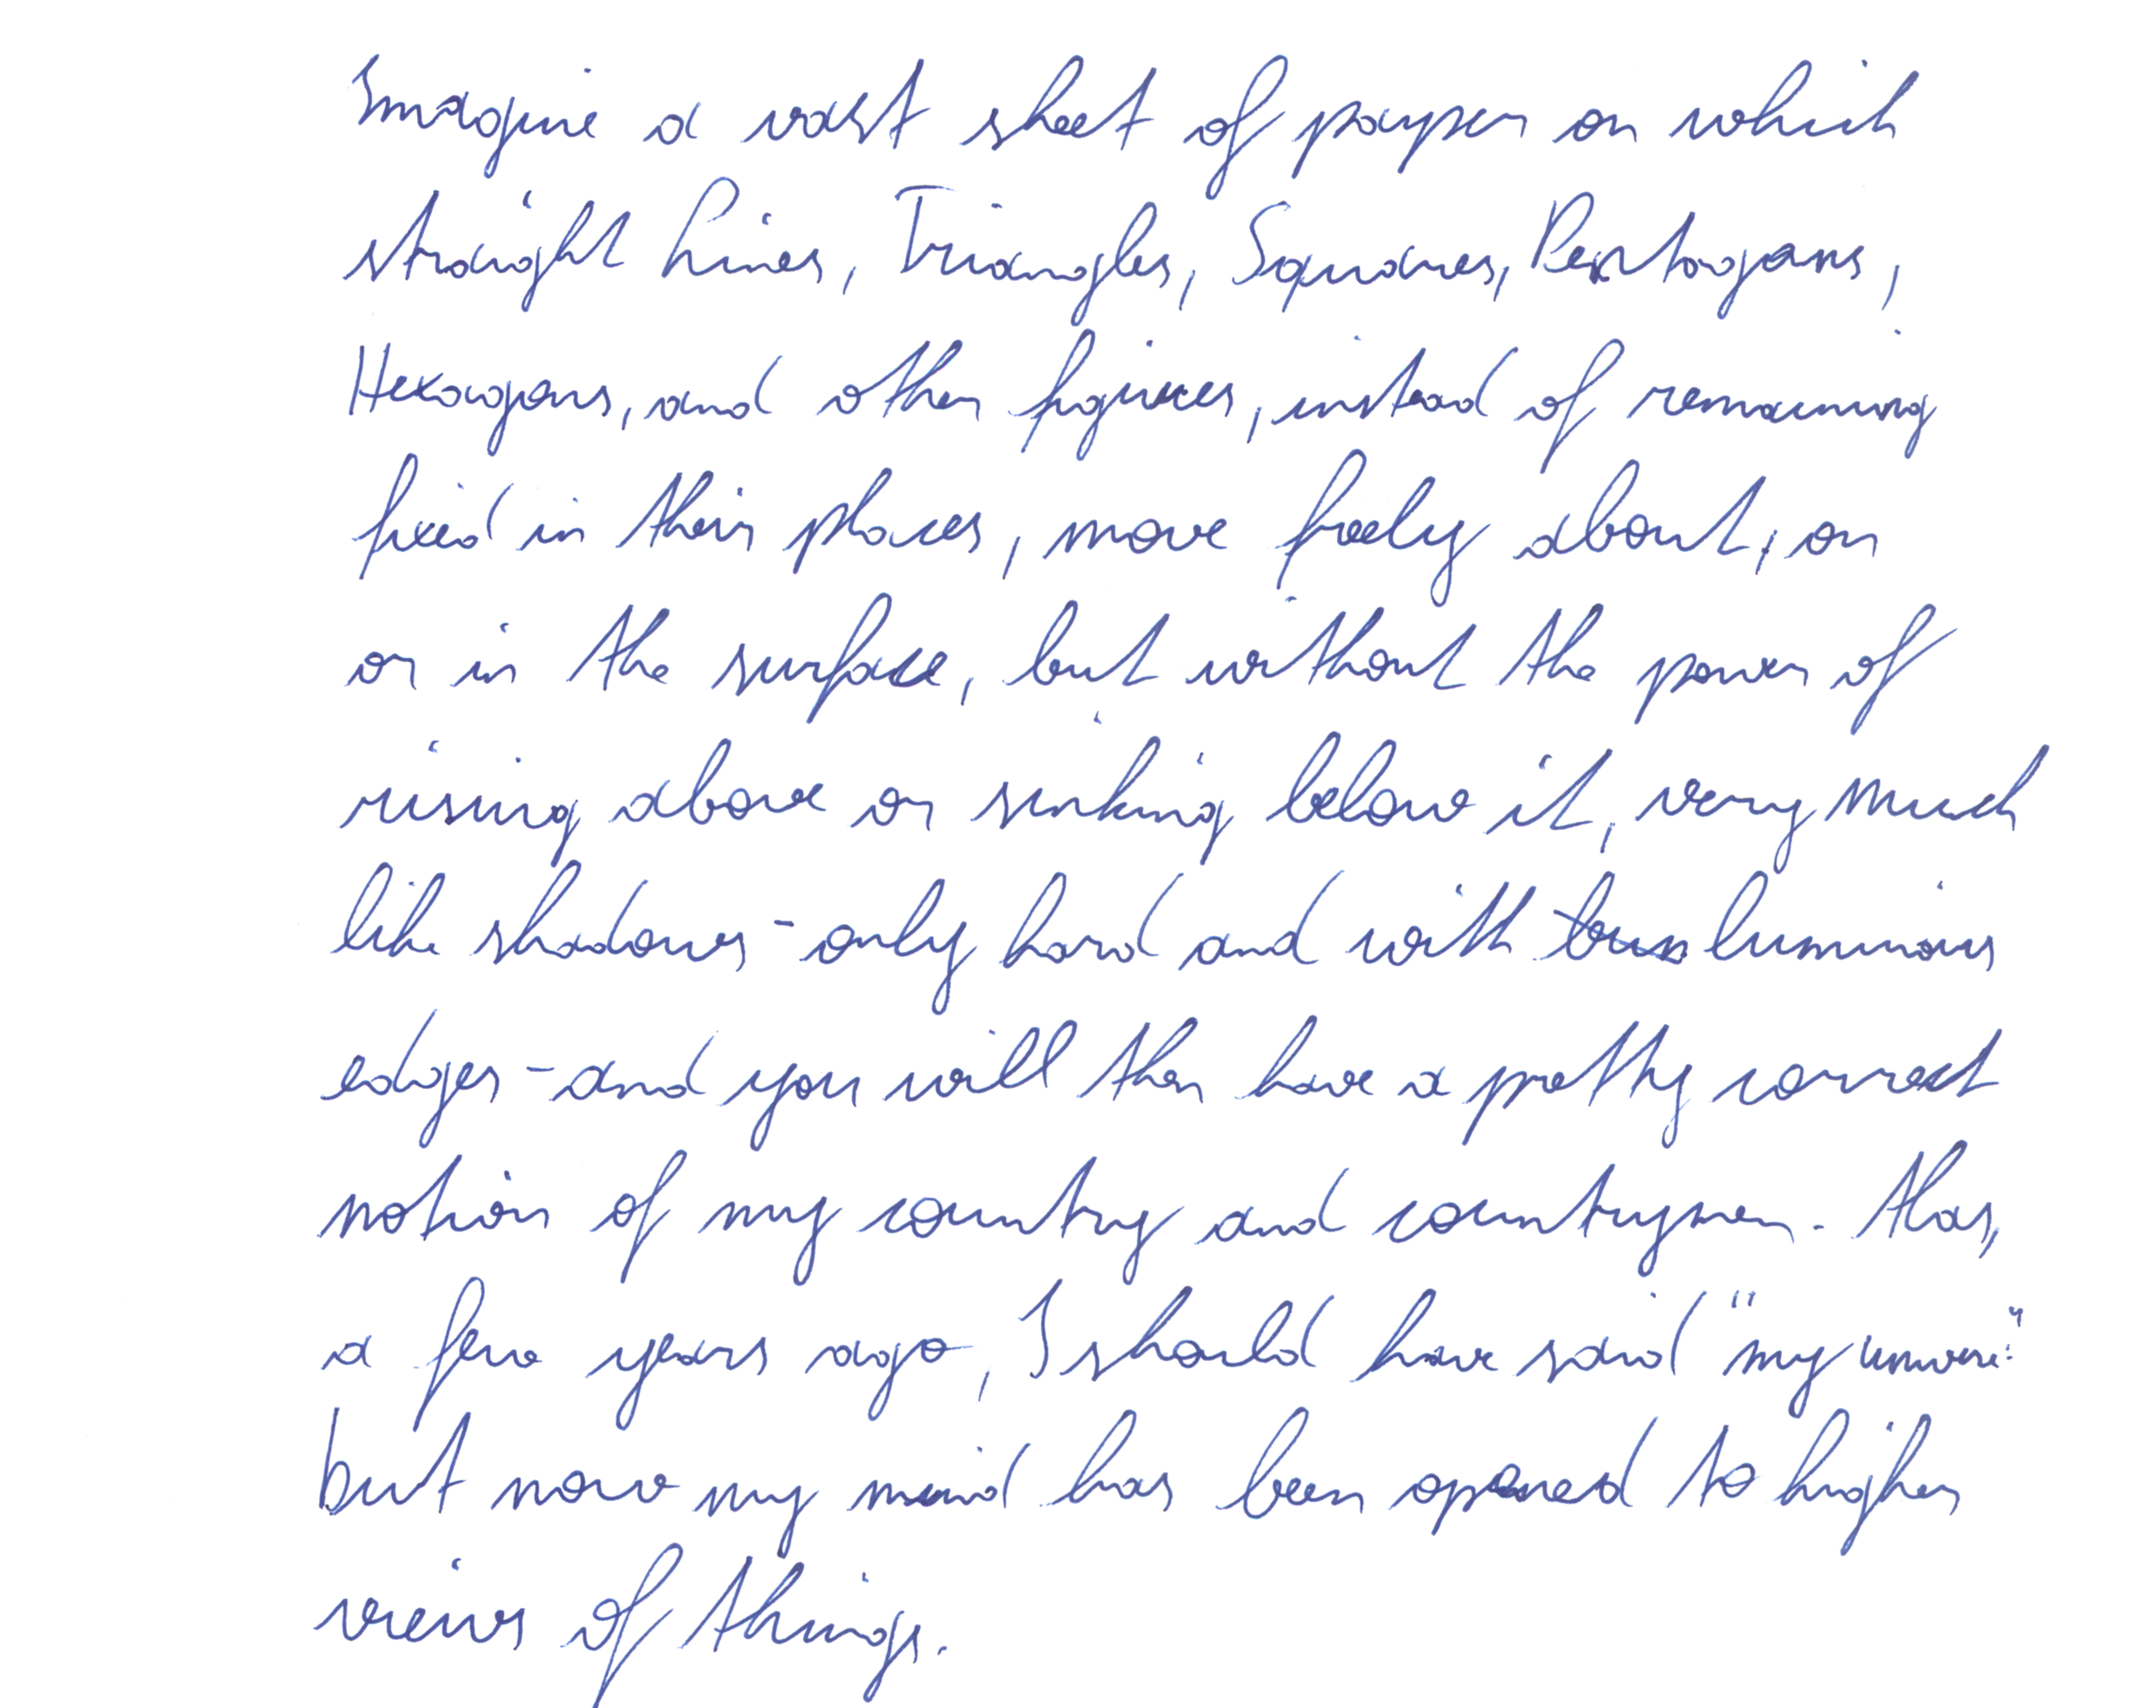 Imagine a vast sheet of paper on which
straight Lines, Triangles, Squares, Pentagons,
Hexagons, and other figures, instead of remaining
fixed in their places, move freely about, on
or in the surface, but without the power of
rising above or sinking below it, very much
like shadows - only hard and with luminous
edges - and you will then have a pretty correct
notion of my country and countrymen. Alas,
a few years ago, I should have said "my
but now my mind has been opened to higher
views of things.